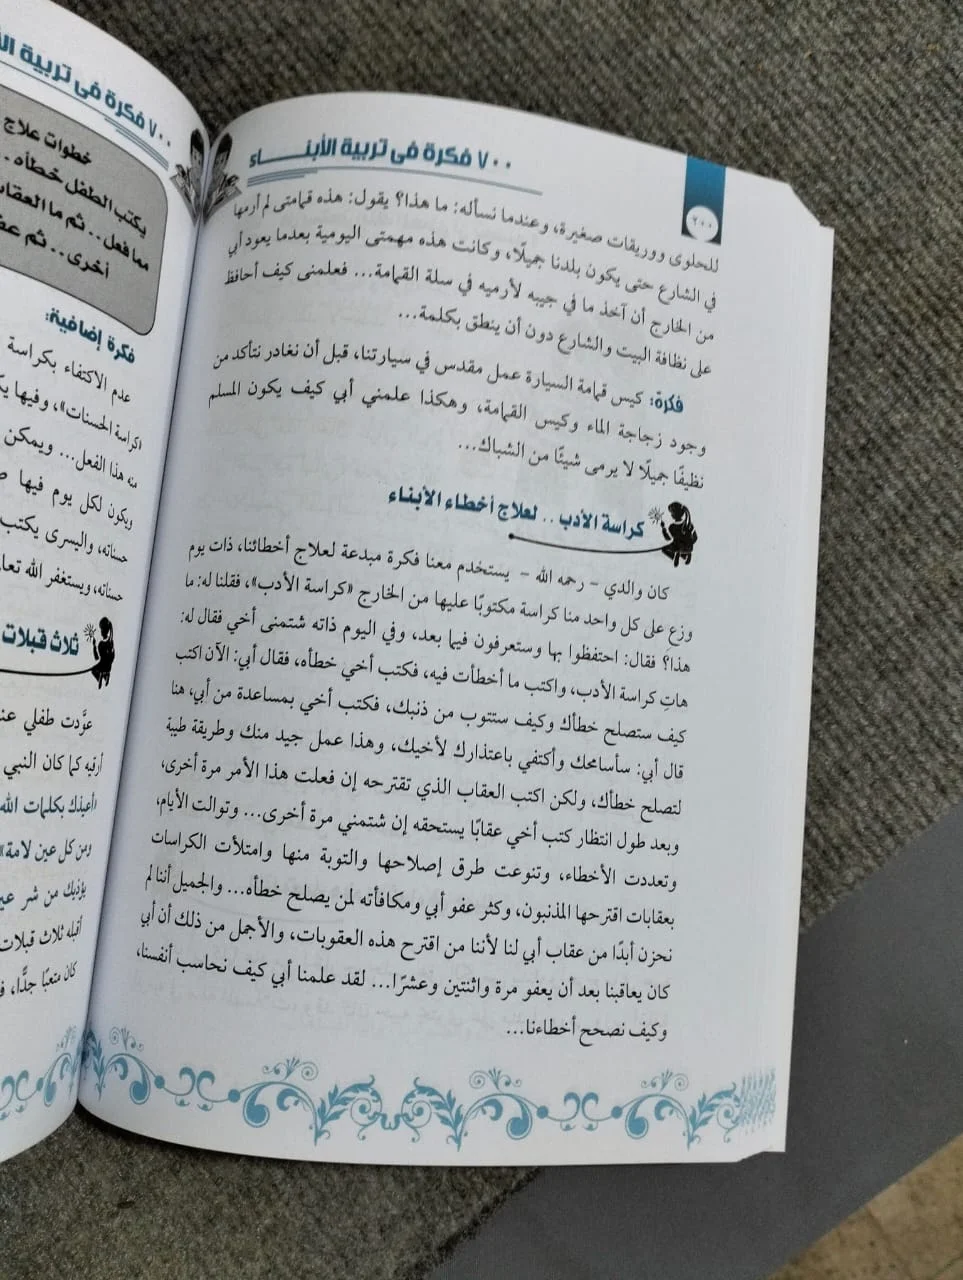 ٧٠٠ فكرة فى تربية الأبنـــــاء
٢٠٠
للحلوى ووريقات صغيرة، وعندما نسأله: ما هذا؟ يقول: هذه قمامتى لم أرمها
في الشارع حتى يكون بلدنا جميلًا، وكانت هذه مهمتى اليومية بعدما يعود أبي
من الخارج أن آخذ ما في جيبه لأرميه في سلة القمامة... فعلمنى كيف أحافظ
على نظافة البيت والشارع دون أن ينطق بكلمة...
فكرة: كيس قمامة السيارة عمل مقدس في سيارتنا، قبل أن نغادر نتأكد من
وجود زجاجة الماء وكيس القمامة، وهكذا علمني أبي كيف يكون المسلم
نظيفًا جميلًا لا يرمى شيئًا من الشباك...
كراسة الأدب .. لعلاج أخطاء الأبناء
كان والدي - رحمه الله - يستخدم معنا فكرة مبدعة لعلاج أخطائنا، ذات يوم
وزع على كل واحد منا كراسة مكتوبًا عليها من الخارج «كراسة الأدب»، فقلنا له: ما
هذا؟ فقال: احتفظوا بها وستعرفون فيما بعد، وفي اليوم ذاته شتمنى أخي فقال له:
هاتِ كراسة الأدب، واكتب ما أخطأت فيه، فكتب أخي خطأه، فقال أبي: الآن اكتب
كيف ستصلح خطأك وكيف ستتوب من ذنبك، فكتب أخي بمساعدة من أبي، هنا
قال أبي: سأسامحك وأكتفي باعتذارك لأخيك، وهذا عمل جيد منك وطريقة طيبة
لتصلح خطأك، ولكن اكتب العقاب الذي تقترحه إن فعلت هذا الأمر مرة أخرى،
وبعد طول انتظار كتب أخي عقابًا يستحقه إن شتمني مرة أخرى... وتوالت الأيام،
وتعددت الأخطاء، وتنوعت طرق إصلاحها والتوبة منها وامتلأت الكراسات
بعقابات اقترحها المذنبون، وكثر عفو أبي ومكافأته لمن يصلح خطأه... والجميل أننا لم
نحزن أبدًا من عقاب أبي لنا لأننا من اقترح هذه العقوبات، والأجمل من ذلك أن أبي
كان يعاقبنا بعد أن يعفو مرة واثنتين وعشرًا... لقد علمنا أبي كيف نحاسب أنفسنا،
وكيف نصحح أخطاءنا...
٧٠٠ فكرة فى تربية
خطوات علاج
يكتب الطفل خطأه ..
مما فعل .. ثم ما العقاب
أخرى .. ثم
فكرة إضافية:
عدم الاكتفاء بكراسة
«كراسة الحسنات»، وفيها
منه هذا الفعل... ويمكن
ويكون لكل يوم فيها
حسناته، واليسرى يكتب
حسناته، ويستغفر الله
ثلاث قبلات
عوَّدت طفلي
أرقيه كما كان النبي
«أعيذك بكلمات الله
ومن كل عين لامة»
يؤذيك من شر
أقبله ثلاث قبلات
كان متعبًا جدًّا،